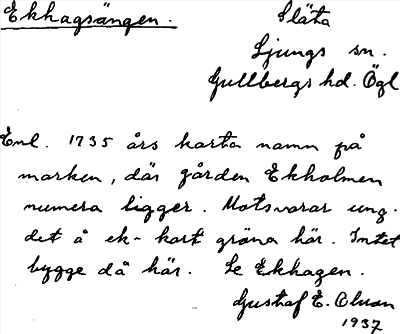 Ekhagsängen.
Släta
Ljungs sn.
Gullbergs hd. Ögl
Enl. 1735 års karta namn på
marken, där gården Ekholmen
numera ligger. Motsvarar ung.
det å ek-kart gröna här. Intet
bygge då här. Se Ekhagen.
Gustaf E. Olson
1937